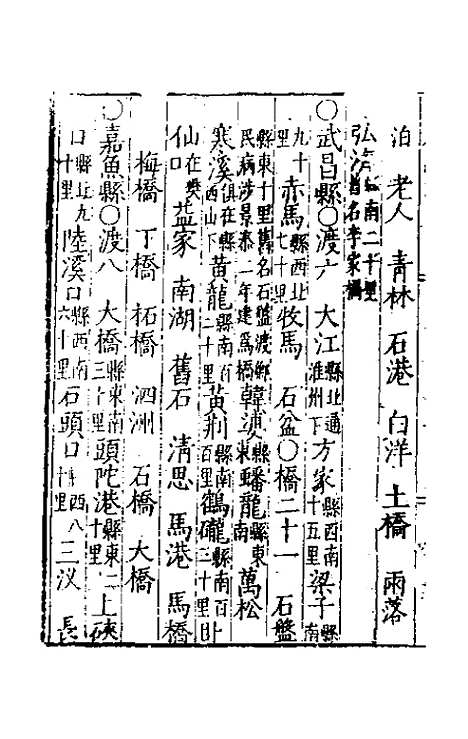 泊 老人 青林 石港 白洋 土橋 兩落
弘濟縣南二十里舊名李家橋
○武昌縣○渡六 大江縣北通淮州下方家縣西南十五里梁子縣南
九十里赤馬縣西北七十里牧馬 石盆○橋二十一 石盤
縣東十里舊名石盤渡縣民病涉景泰二年建爲橋韓婆縣東蟠龍縣東南萬松
寒溪俱在縣西山下黃龍縣南百二十里黃荆縣南百里鶴磯縣南百二十里已上
仙口在樊 益家 南湖 舊石 清思 馬港 馬橋
梅橋 丁橋 柘橋 泗洲 石橋 大橋
○嘉魚縣○渡八 大橋縣東南三十里頭陀港縣東二十里上硤
口縣北九十里陸溪口縣西南六十里石頭口西八十里三汊 長